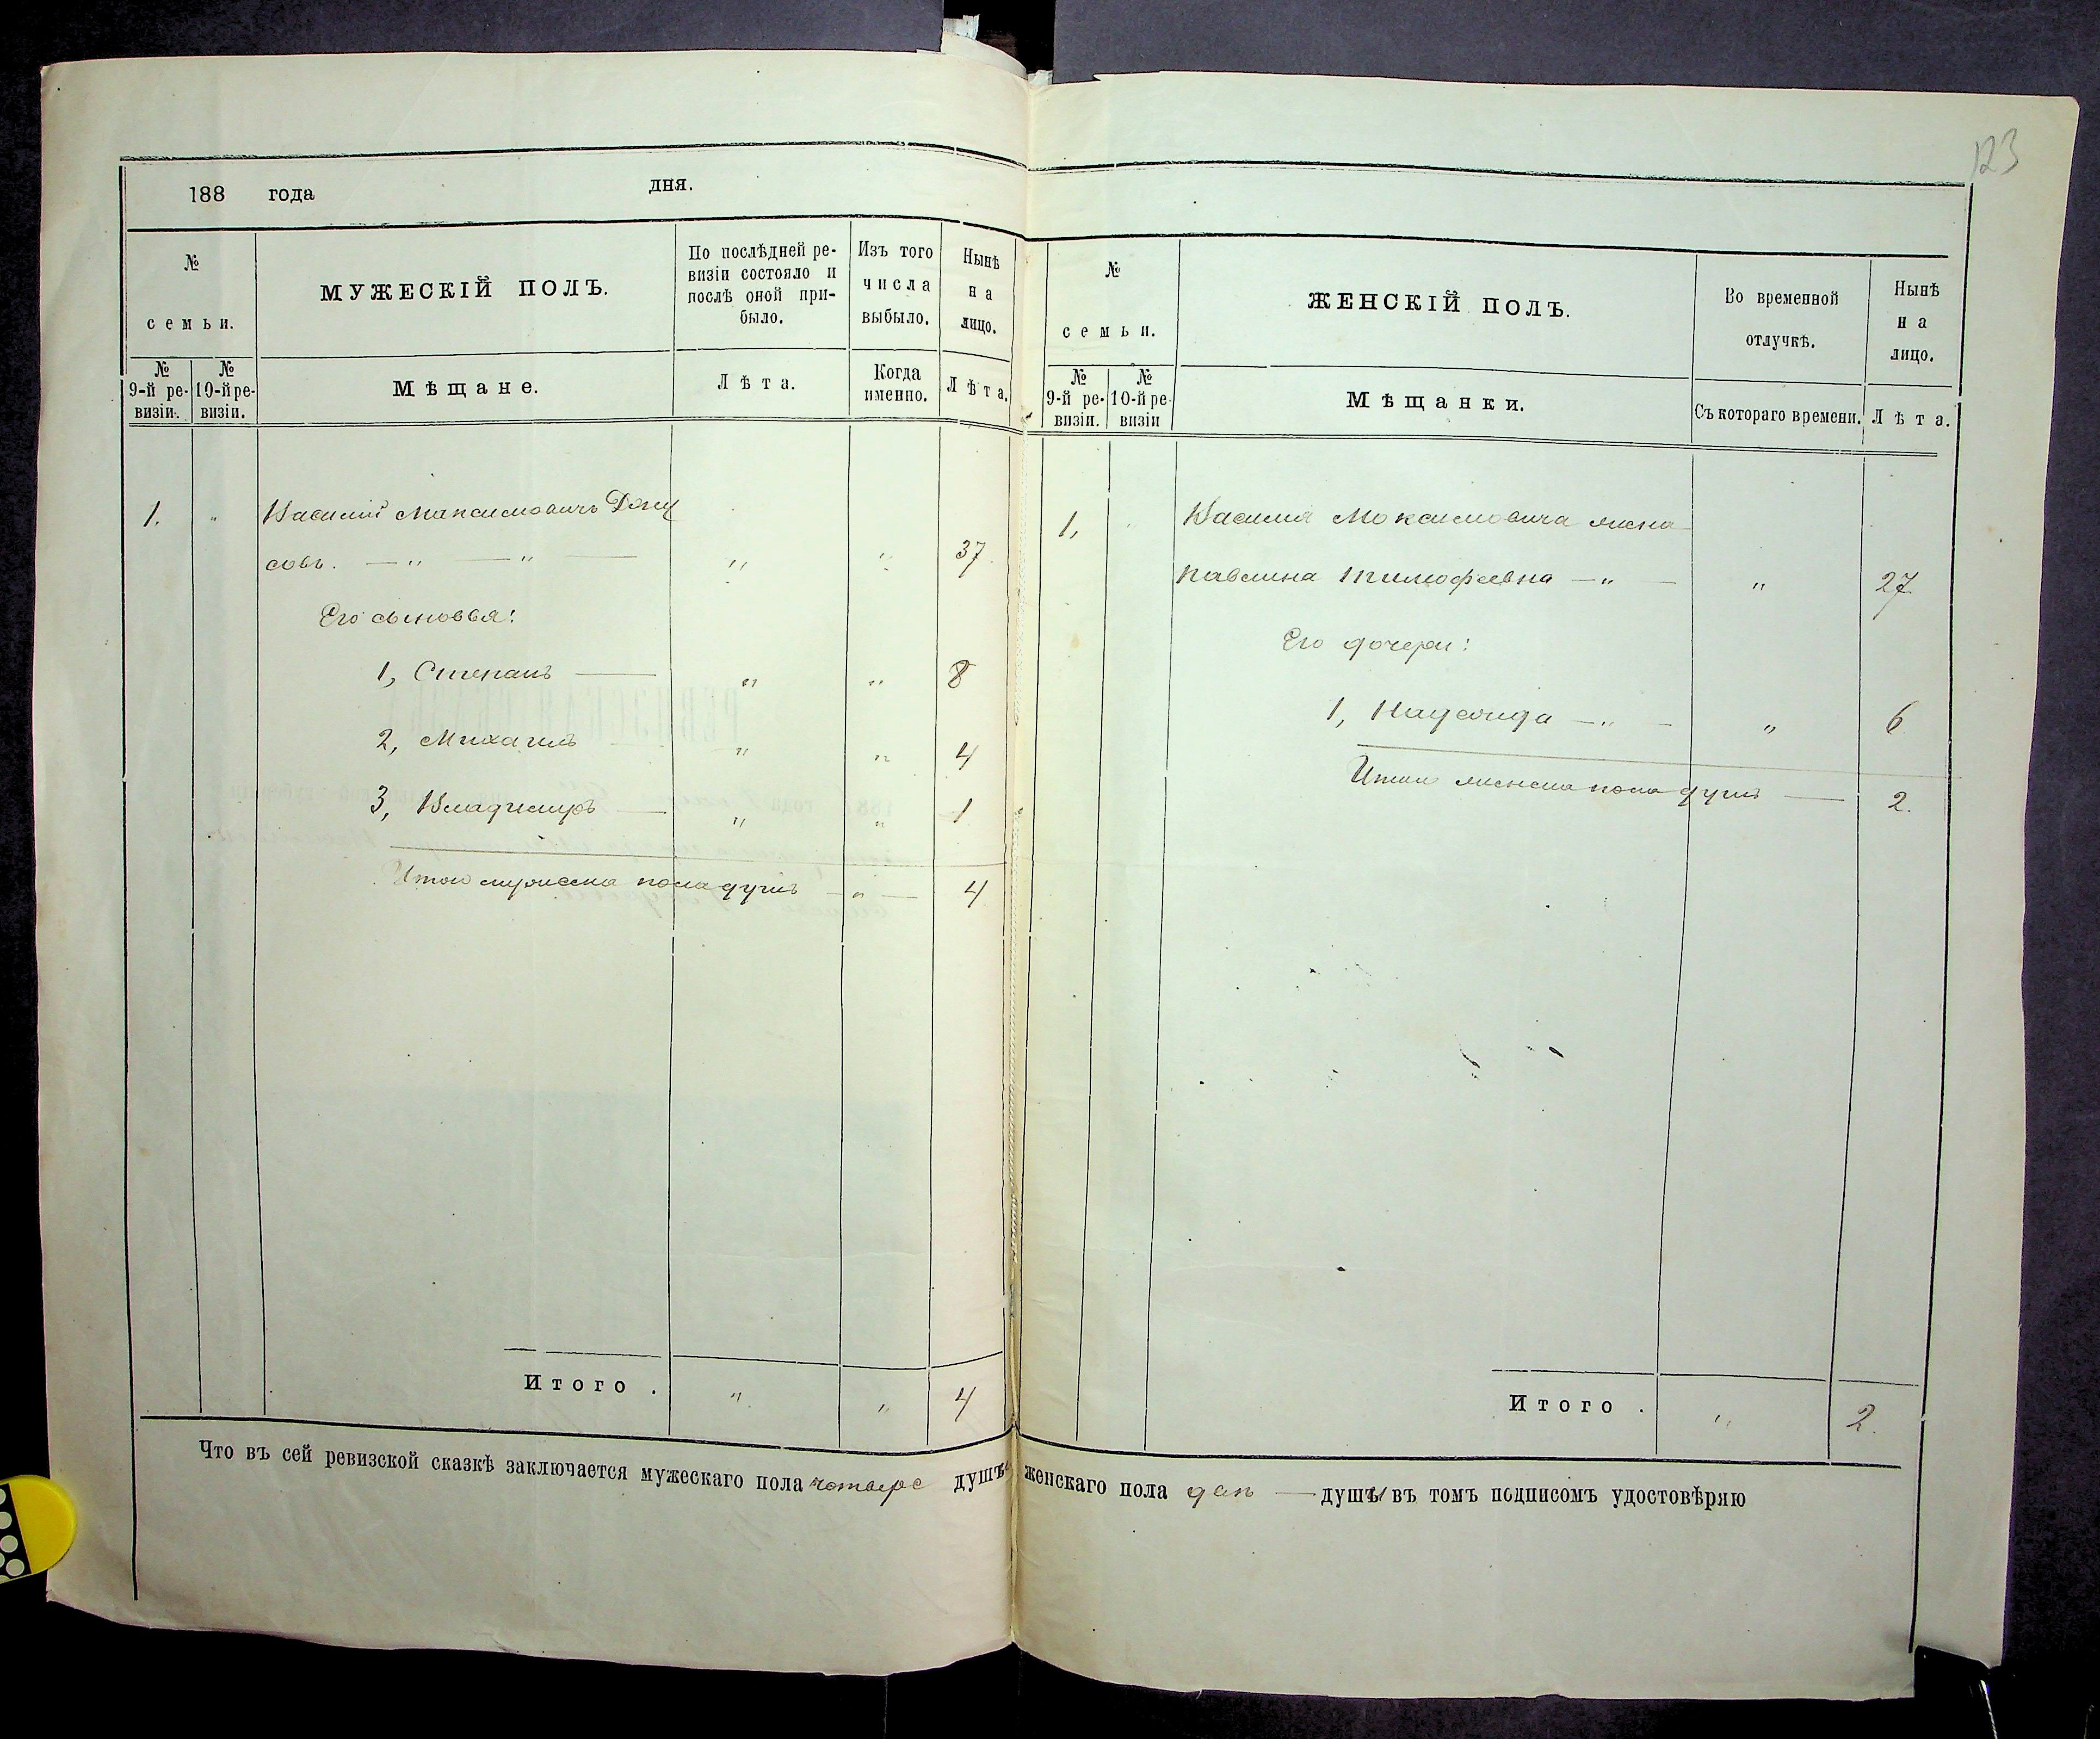 123
188 года дня.
№ семьи.
МУЖЕСКІЙ ПОЛЪ.
По послѣдней ре-
визіи состояло и
послѣ оной при-
было.
Изъ того
числа
выбыло.
Нынѣ
на
лицо.
№
9-й ре-
визіи.
№
10-й ре-
визіи.
Мѣщане.
Лѣта.
Когда
именно.
Лѣта.
1. " Василій Максимовичъ
совъ. — " — " — " " 37
Его сыновья:
1, Степанъ — " " 8
2, Михаилъ " " 4
3, Владимиръ — " " 1
Итого мужеска пола душъ — " — 4
Итого . " " 4
№
семьи.
ЖЕНСКІЙ ПОЛЪ.
Во временной
отлучкѣ.
Нынѣ
на
лицо.
№
9-й ре-
визіи.
№
10-й ре-
визіи
Мѣщанки.
Съ котораго времени.
Лѣта.
1, Василия Моксимовича жена
Павлина Тимофеевна — " — " 27
Его дочери:
1, Надежда — " — " 6
Итого женска пола душъ — 2.
Итого . " 2.
Что въ сей ревизской сказкѣ заключается мужескаго пола четверо душъ женскаго пола двѣ — душъ въ томъ подписомъ удостовѣряю